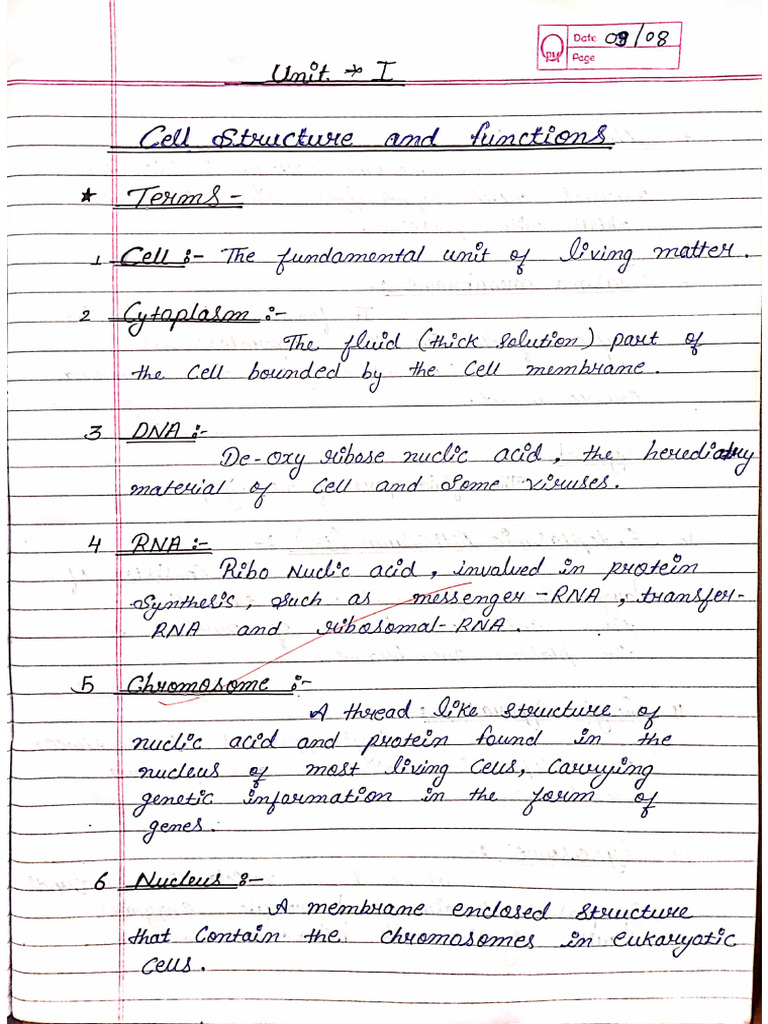 PM Date 09/08
Page
Unit → I
Cell Structure and functions
* Terms -
1 Cell :- The fundamental unit of living matter.
2 Cytoplasm :-
The fluid (thick solution) part of
the cell bounded by the cell membrane.
3 DNA :-
De-oxy ribose nuclic acid, the herediatry
material of cell and some viruses.
4 RNA :-
Ribo Nuclic acid, involved in protein
synthesis, such as messenger-RNA, transfer-
RNA and ribosomal-RNA.
5 Chromosome :-
A thread like structure of
nuclic acid and protein found in the
nucleus of most living cells, carrying
genetic information in the form of
genes.
6 Nucleus :-
A membrane enclosed structure
that contain the chromosomes in eukaryotic
cells.